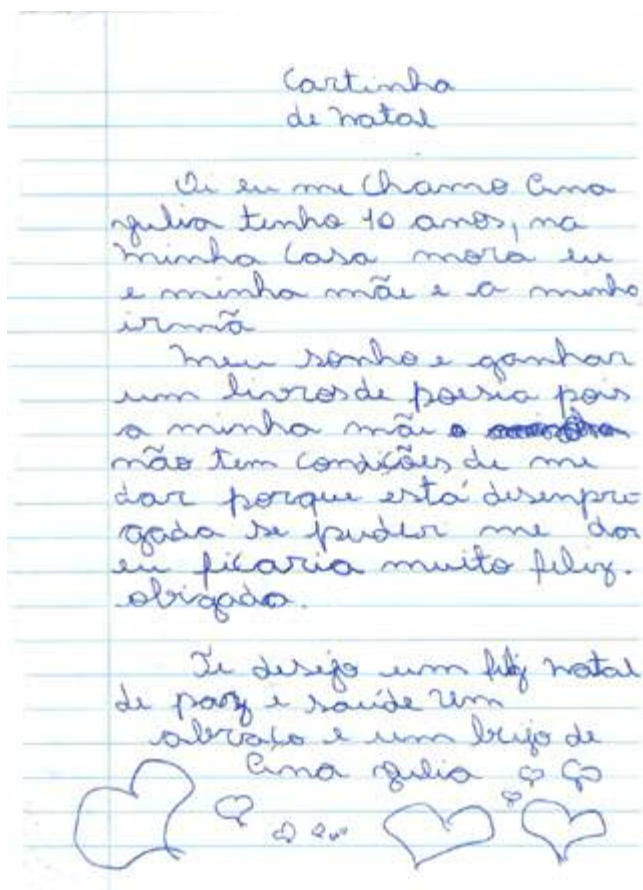 Cartinha
de natal
Oi eu me chamo Ana
julia tenho 10 anos, na
minha casa mora eu
e minha mãe e a minha
irmã
meu sonho e ganhar
um livros de poesia pois
a minha mãe
não tem condições de me
dar porque está desenpre
gada se puder me dar
eu ficaria muito feliz.
obrigada.
Te desejo um feliz natal
de paz e saúde um
abraço e um beijo de
Ana julia